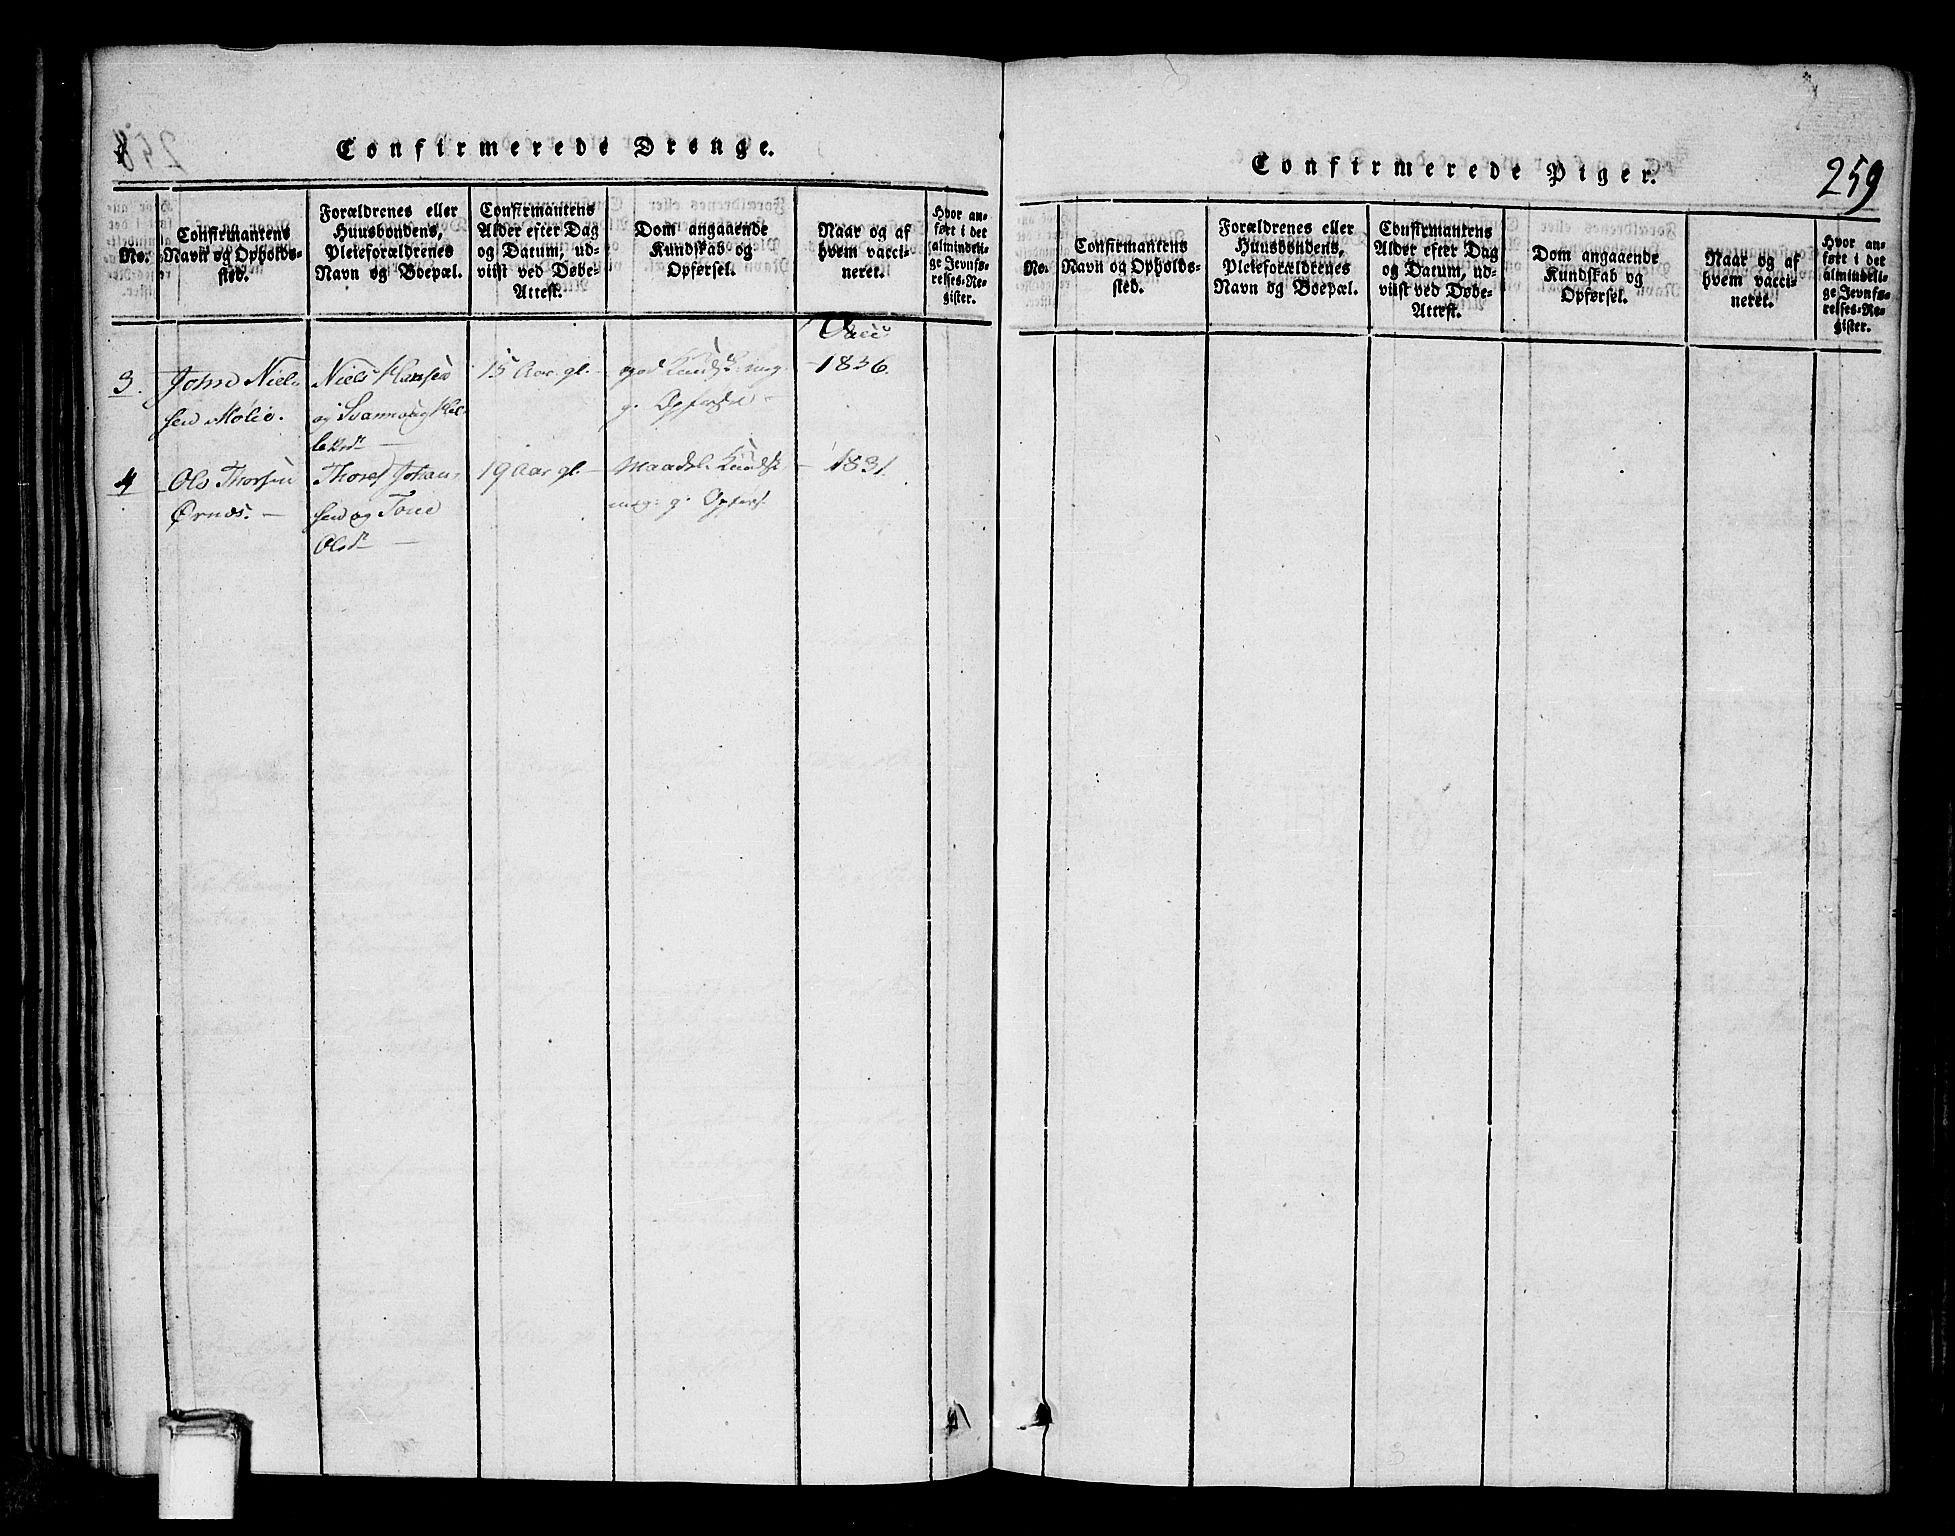 Confirmerede Drenge.
No.
Confirmantens
Navn og Opholds-
sted.
Forældrenes eller
Huusbondens,
Pleieforældrenes
Navn og Boepæl.
Confirmantens
Alder efter Dag
og Datum, ud-
viist ved Døbe-
Attest.
Dom angaaende
Kundskab og
Opførsel.
Naar og af
hvem vacci-
neret.
Hvor an-
ført i det
almindeli-
ge Jevnfø-
relses-Re-
gister.
Vacc
3.
John Niel-
sen
Niels Hansen
og
15 Aar gl. -
god Kundsk. meg
g. Opførsel -
- 1836.
4
Ole Thorsen
Ørnes. -
Thores Johan-
sen og Tone
Olsd. -
19 Aar gl. -
Maadel. Kundsk
meg. g. Opførs.
- 1831
Confirmerede Piger.
259
No.
Confirmantens
Navn og Opholds-
sted.
Forældrenes eller
Huusbondens,
Pleieforældrenes
Navn og Boepæl.
Confirmantens
Alder efter Dag
og Datum, ud-
viist ved Døbe-
Attest.
Dom angaaende
Kundskab og
Opførsel.
Naar og af
hvem vacci-
neret.
Hvor an-
ført i det
almindeli-
ge Jevnfø-
relses-Re-
gister.